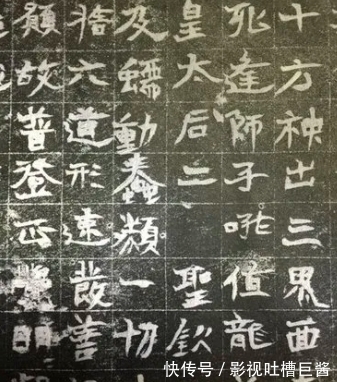 十方神出三界面
死逢師子吼值龍
皇太后二聖欽
及蠕動蠢類一切
捨六道形速發善
願故普登正
快传号 / 影视吐槽巨酱